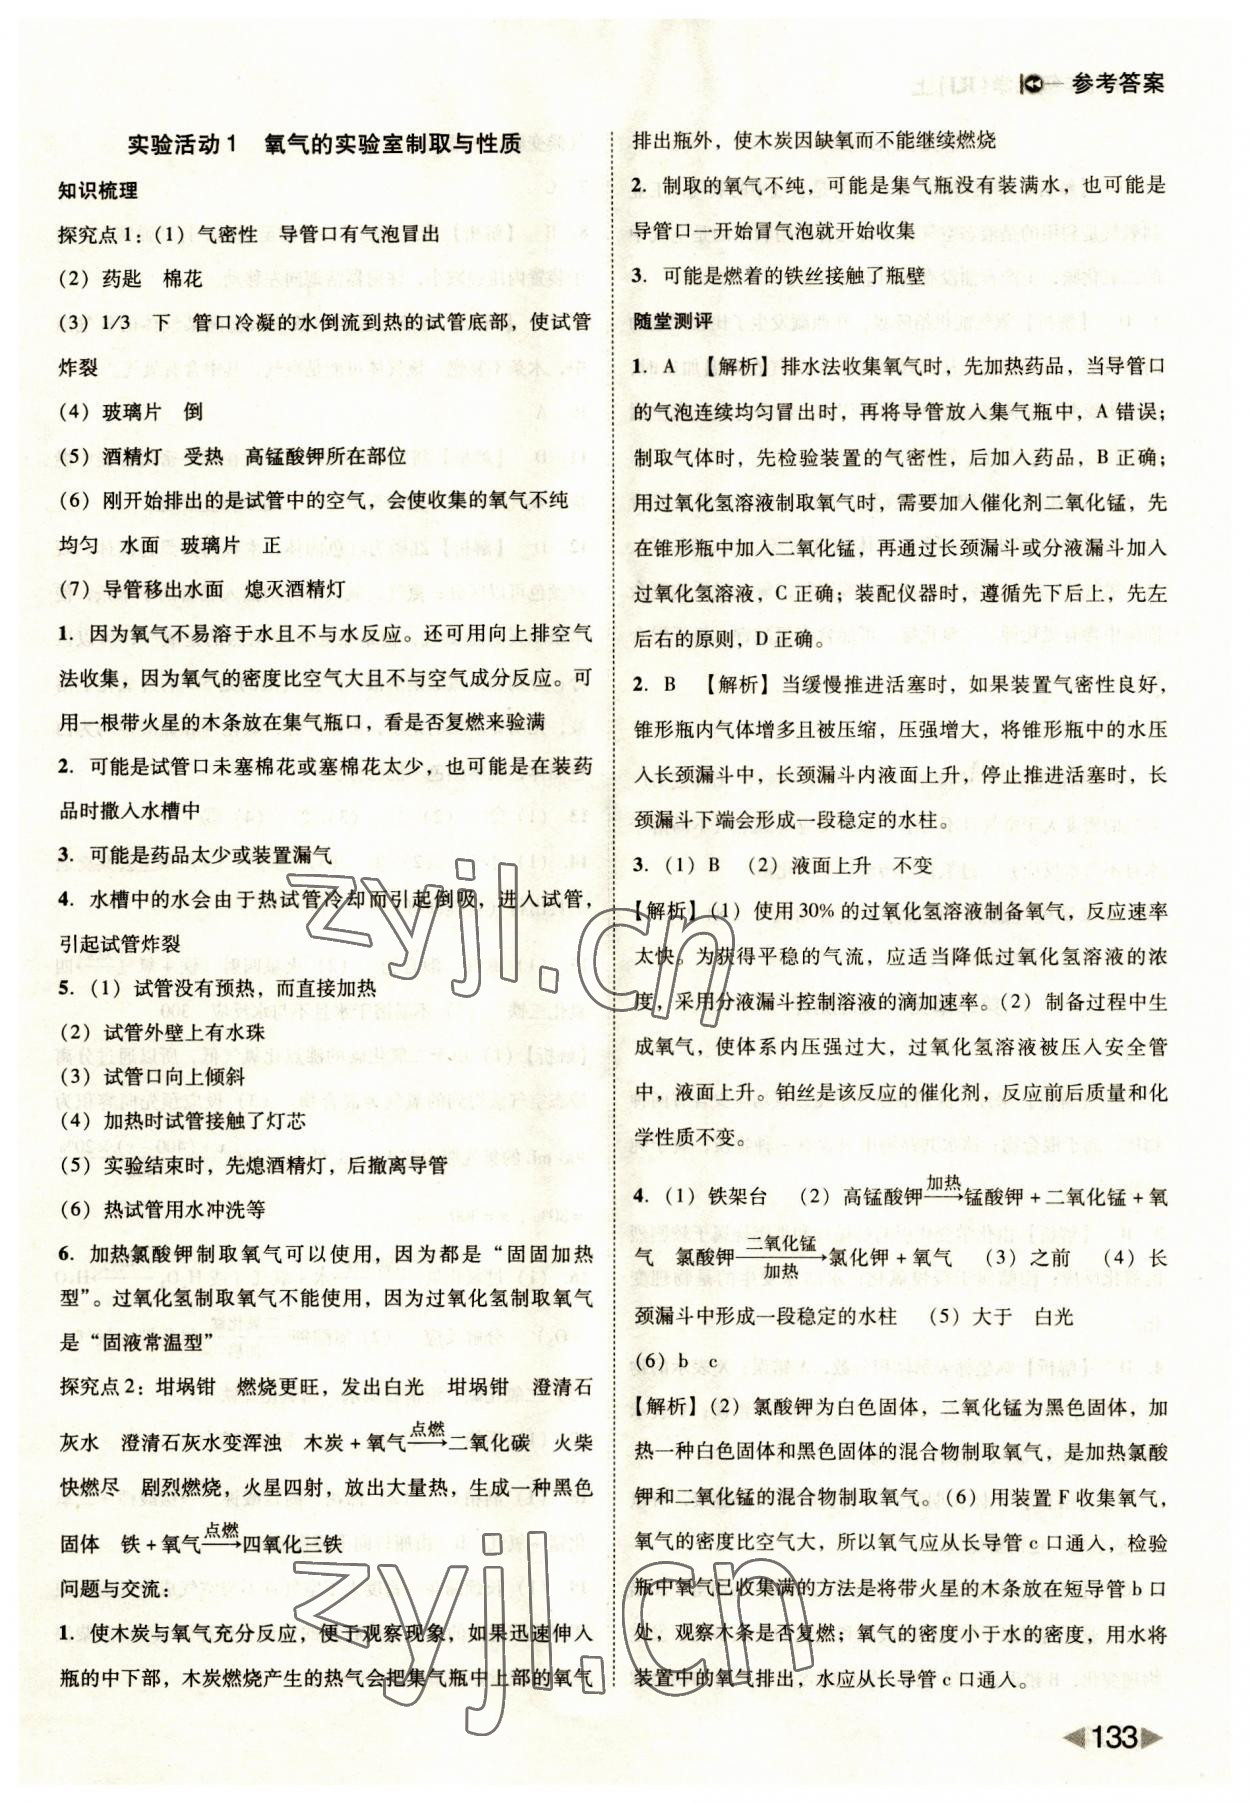 参考答案
实验活动1 氧气的实验室制取与性质
知识梳理
探究点1:(1)气密性 导管口有气泡冒出
(2)药匙 棉花
(3)1/3 下 管口冷凝的水倒流到热的试管底部,使试管
炸裂
(4)玻璃片 倒
(5)酒精灯 受热 高锰酸钾所在部位
(6)刚开始排出的是试管中的空气,会使收集的氧气不纯
均匀 水面 玻璃片 正
(7)导管移出水面 熄灭酒精灯
1. 因为氧气不易溶于水且不与水反应。还可用向上排空气
法收集,因为氧气的密度比空气大且不与空气成分反应。可
用一根带火星的木条放在集气瓶口,看是否复燃来验满
2. 可能是试管口未塞棉花或塞棉花太少,也可能是在装药
品时撒入水槽中
3. 可能是药品太少或装置漏气
4. 水槽中的水会由于热试管冷却而引起倒吸,进入试管,
引起试管炸裂
5.(1)试管没有预热,而直接加热
(2)试管外壁上有水珠
(3)试管口向上倾斜
(4)加热时试管接触了灯芯
(5)实验结束时,先熄酒精灯,后撤离导管
(6)热试管用水冲洗等
6. 加热氯酸钾制取氧气可以使用,因为都是“固固加热
型”。过氧化氢制取氧气不能使用,因为过氧化氢制取氧气
是“固液常温型”
探究点2:坩埚钳 燃烧更旺,发出白光 坩埚钳 澄清石
灰水 澄清石灰水变浑浊 木炭+氧气—点燃→二氧化碳 火柴
快燃尽 剧烈燃烧,火星四射,放出大量热,生成一种黑色
固体 铁+氧气—点燃→四氧化三铁
问题与交流:
1. 使木炭与氧气充分反应,便于观察现象,如果迅速伸入
瓶的中下部,木炭燃烧产生的热气会把集气瓶中上部的氧气
排出瓶外,使木炭因缺氧而不能继续燃烧
2. 制取的氧气不纯,可能是集气瓶没有装满水,也可能是
导管口一开始冒气泡就开始收集
3. 可能是燃着的铁丝接触了瓶壁
随堂测评
1. A 【解析】排水法收集氧气时,先加热药品,当导管口
的气泡连续均匀冒出时,再将导管放入集气瓶中,A错误;
制取气体时,先检验装置的气密性,后加入药品,B正确;
用过氧化氢溶液制取氧气时,需要加入催化剂二氧化锰,先
在锥形瓶中加入二氧化锰,再通过长颈漏斗或分液漏斗加入
过氧化氢溶液,C正确;装配仪器时,遵循先下后上,先左
后右的原则,D正确。
2. B 【解析】当缓慢推进活塞时,如果装置气密性良好,
锥形瓶内气体增多且被压缩,压强增大,将锥形瓶中的水压
入长颈漏斗中,长颈漏斗内液面上升,停止推进活塞时,长
颈漏斗下端会形成一段稳定的水柱。
3.(1)B (2)液面上升 不变
【解析】(1)使用30%的过氧化氢溶液制备氧气,反应速率
太快。为获得平稳的气流,应适当降低过氧化氢溶液的浓
度,采用分液漏斗控制溶液的滴加速率。(2)制备过程中生
成氧气,使体系内压强过大,过氧化氢溶液被压入安全管
中,液面上升。铂丝是该反应的催化剂,反应前后质量和化
学性质不变。
4.(1)铁架台 (2)高锰酸钾—加热→锰酸钾+二氧化锰+氧
气 氯酸钾—二氧化锰/加热→氯化钾+氧气 (3)之前 (4)长
颈漏斗中形成一段稳定的水柱 (5)大于 白光
(6)b c
【解析】(2)氯酸钾为白色固体,二氧化锰为黑色固体,加
热一种白色固体和黑色固体的混合物制取氧气,是加热氯酸
钾和二氧化锰的混合物制取氧气。(6)用装置F收集氧气,
氧气的密度比空气大,所以氧气应从长导管c口通入,检验
瓶中氧气已收集满的方法是将带火星的木条放在短导管b口
处,观察木条是否复燃;氧气的密度小于水的密度,用水将
装置中的氧气排出,水应从长导管c口通入。
133
zyjl.cn
zyjl.cn